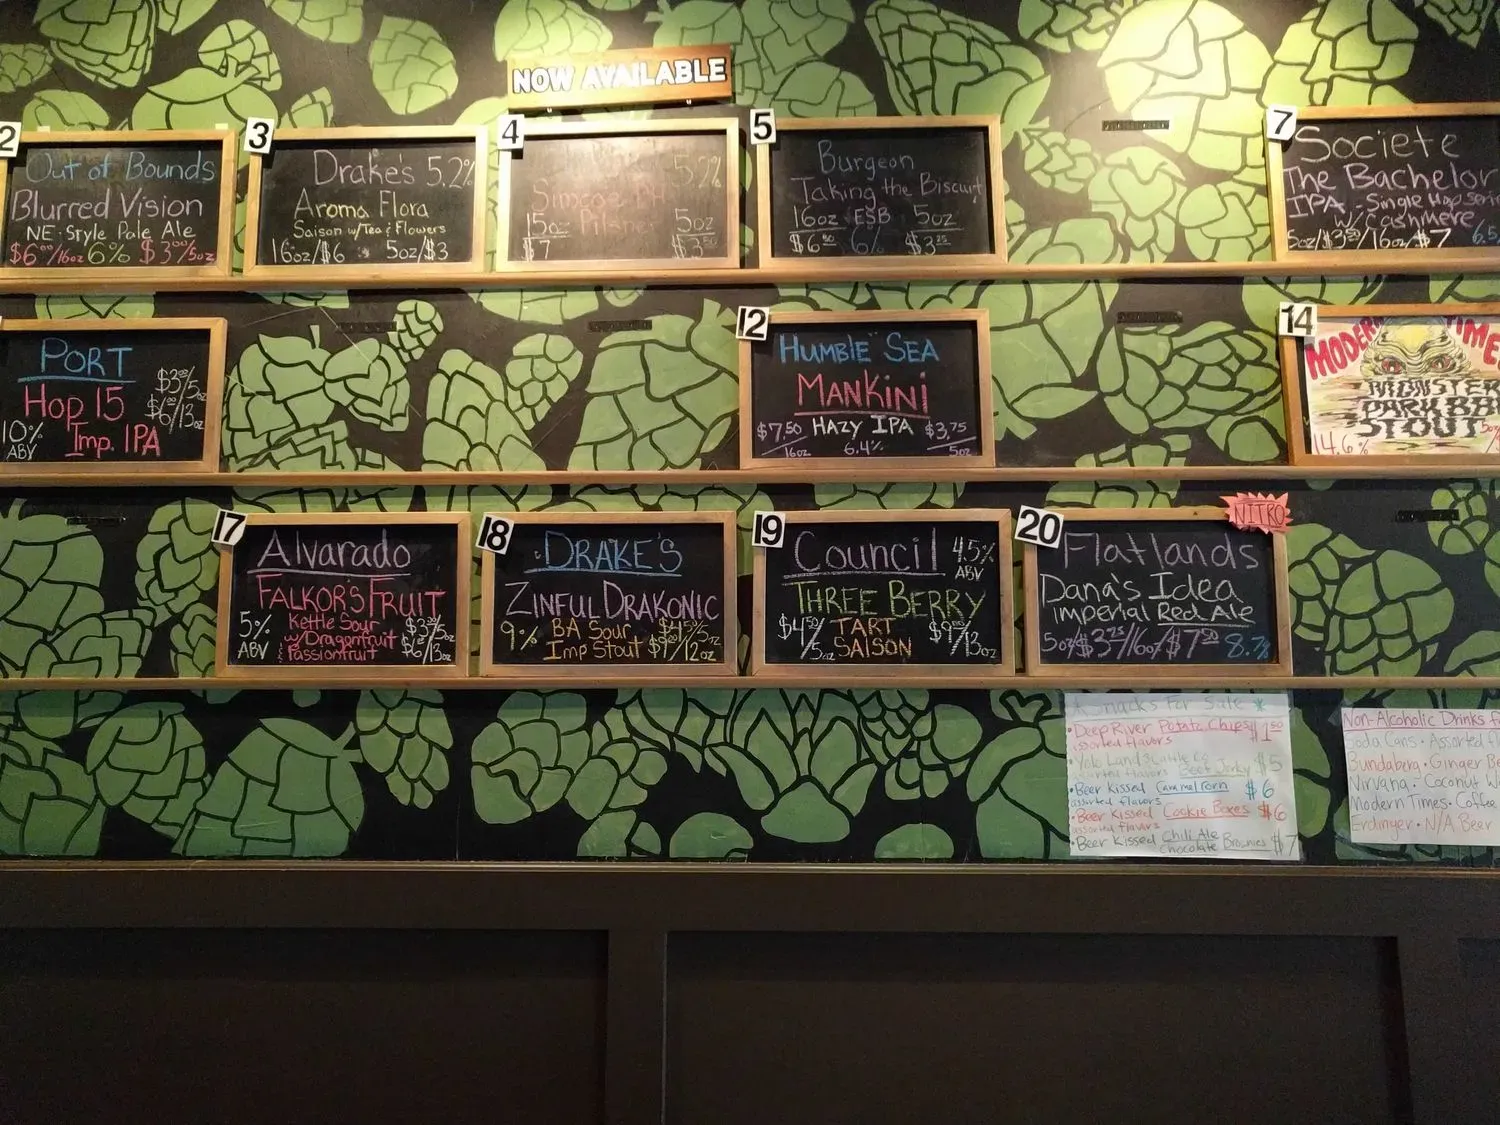 NOW AVAILABLE
2
Out of Bounds
Blurred Vision
NE-Style Pale Ale
$6⁰⁰/16oz 6% $3⁰⁰/5oz
3
Drake's 5.2%
Aroma Flora
Saison w/Tea & Flowers
16oz/$6 5oz/$3
4
5.2%
Simcoe
15oz Pilsner 5oz
$7 $3.50
5
Burgeon
Taking the Biscuit
16oz ESB 5oz
$6 6% $3.25
7
Societe
The Bachelor
IPA - Single Hop Series
w/Cashmere
5oz/$3⁵⁰/16oz $7 6.5
PORT
Hop 15
Imp. IPA
10%
ABV
$3/5oz
$6/13oz
12
HUMBLE SEA
MANKINI
HAZY IPA
$7.50/16oz 6.4% $3.75/5oz
14
MODERN TIMES
MONSTER
PARK BBL
STOUT
14.6%
17
Alvarado
FALKOR'S FRUIT
Kettle Sour
w/Dragonfruit
& Passionfruit
5%
ABV
5oz
$6/13oz
18
DRAKE'S
ZINFUL DRAKONIC
9% BA Sour
Imp Stout
5oz
12oz
19
Council 4.5%
ABV
THREE BERRY
TART
SAISON
$4⁵⁰/5oz
13oz
20
NITRO
Flatlands
Dana's Idea
imperial Red Ale
5oz/$3.75/16oz/$7⁵⁰ 8.7%
Snacks For Sale
• Deep River Potato Chips $1.50
assorted flavors
• Yolo Land & Cattle Co $5
assorted flavors Beef Jerky
• Beer Kissed Caramel Corn $6
assorted flavors
• Beer Kissed Cookie Boxes $6
assorted flavors
• Beer Kissed Chili Ale
Chocolate Brownies $7
Non-Alcoholic Drinks
Soda Cans • Assorted
Bundaberg • Ginger Be
Nirvana • Coconut W
Modern Times • Coffee
Erdinger • N/A Beer